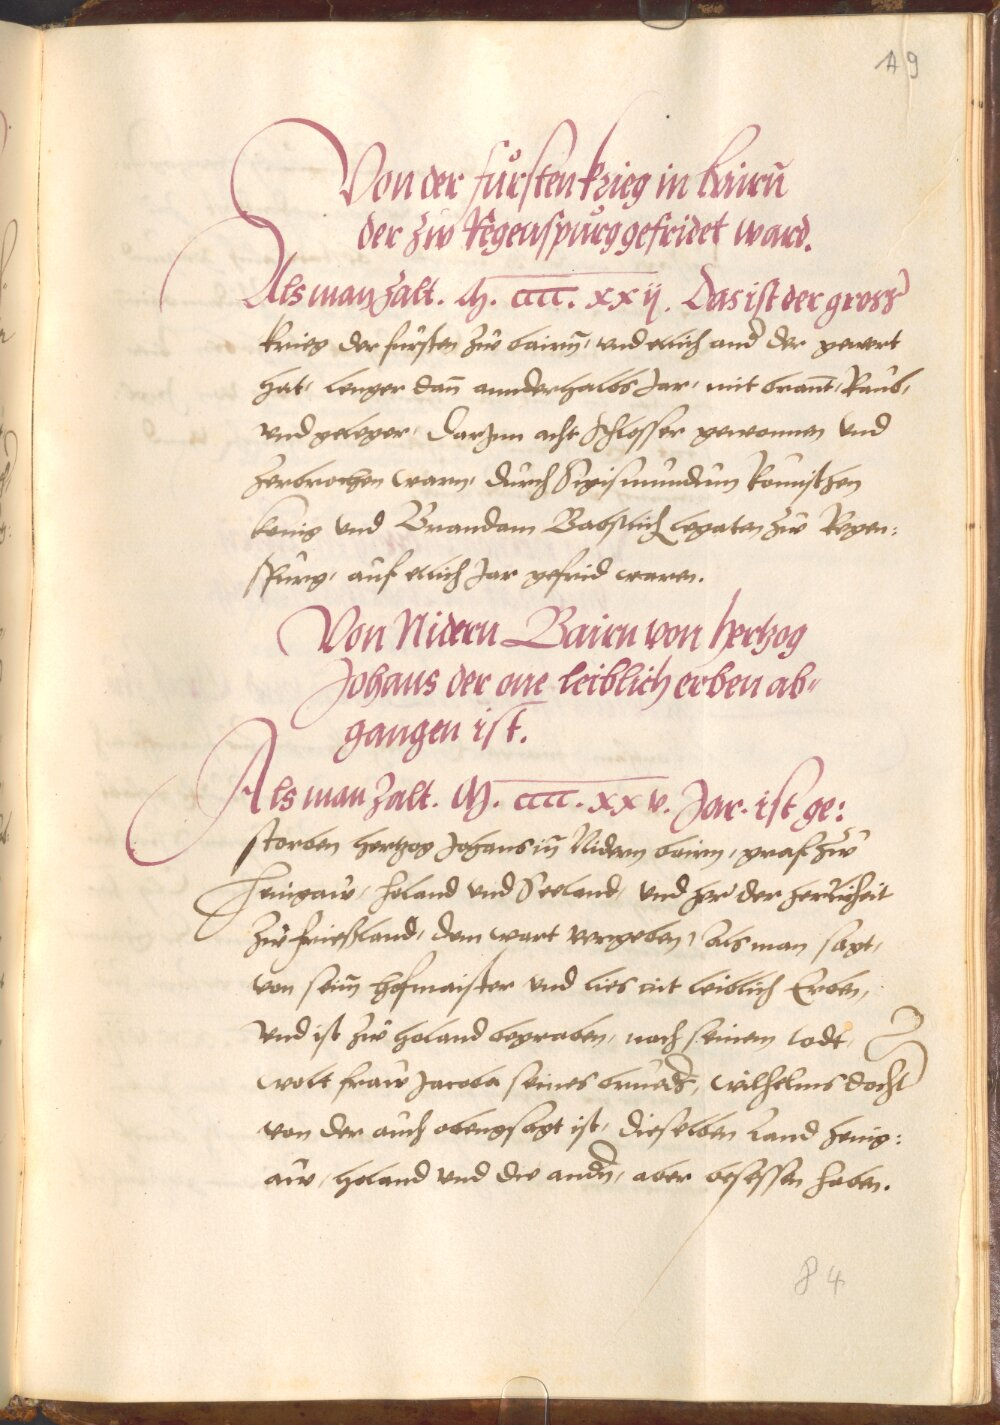 49
Von der fürsten krieg in bairn̄
der zw Regenspurg gefridet ward.
Als man zalt. M. cccc. xx ij. Das ist der gross
krieg der fürsten zw bairn̄, vnd etlich and der gewert
hat, lenger dan̄ annderhalbs Jar, mit brannt, Raub,
vnd geleger, Darjnn acht Schlosser gewonnen vnd
zerbrochen warn, durch Sigismundum Romischen
konig vnd Brandam Babstlich legaten zw Regen:
spurg, auf etlich Jar gefrid waren.
Von Nidern Bairn von hertzog
Johans der one leiblich erben ab„
gangen ist.
Als man zalt. M. cccc. xx v. Jar. ist ge:
storben hertzog Johans in̄ Nidern bairn, graf zw
Henigaw, holand vnd Seeland, vnd her der herlicheit
zw frießland, dem wart vergeben, als man sagt,
von seim̄ hofmaister vnd lies nit leiblich Erben,
vnd ist zw holand begraben, nach seinem todt,
wolt fraw Jacoba seines brueds, wilhelms docht
von der auch obengsagt ist, dieselben Land henig:
aw, holand vnd die andn̄, aber besessen haben.
84